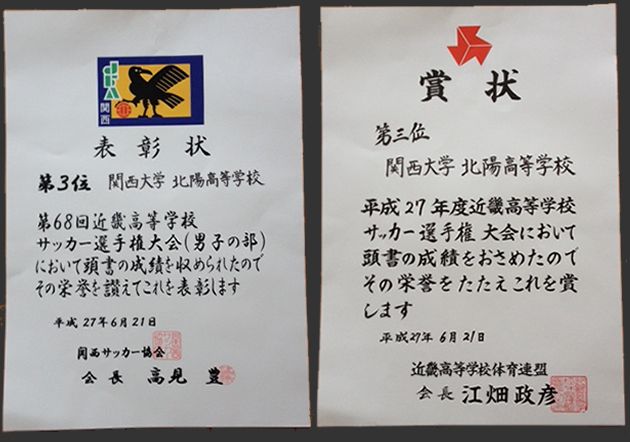 JFA
関西
表彰状
第3位 関西大学 北陽高等学校
第68回近畿高等学校
サッカー選手権大会(男子の部)
において頭書の成績を収められたので
その栄誉を讃えてこれを表彰します
平成27年6月21日
関西サッカー協会
会長 高見 豊
賞状
第三位
関西大学 北陽高等学校
平成27年度近畿高等学校
サッカー選手権大会において
頭書の成績をおさめたので
その栄誉をたたえこれを賞
します
平成27年 6月21日
近畿高等学校体育連盟
会長 江畑政彦